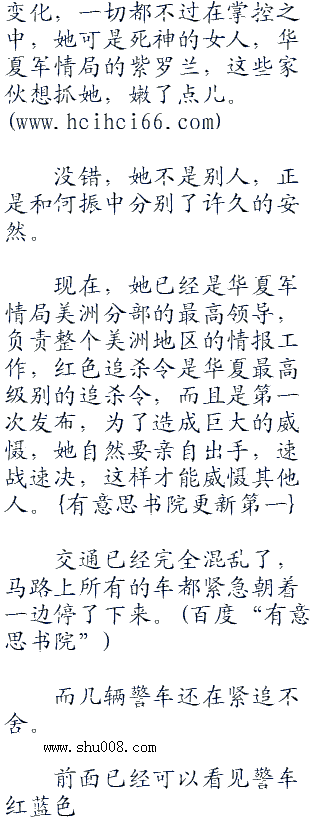 变化，一切都不过在掌控之
中，她可是死神的女人，华
夏军情局的紫罗兰，这些家
伙想抓她，嫩了点儿。
(www.hcihci66.com)
没错，她不是别人，正
是和何振中分别了许久的安
然。
现在，她已经是华夏军
情局美洲分部的最高领导，
负责整个美洲地区的情报工
作，红色追杀令是华夏最高
级别的追杀令，而且是第一
次发布，为了造成巨大的威
慑，她自然要亲自出手，速
战速决，这样才能威慑其他
人。{有意思书院更新第一}
交通已经完全混乱了，
马路上所有的车都紧急朝着
一边停了下来。(百度“有意
思书院”)
而几辆警车还在紧追不
舍。
www.shu008.com
前面已经可以看见警车
红蓝色